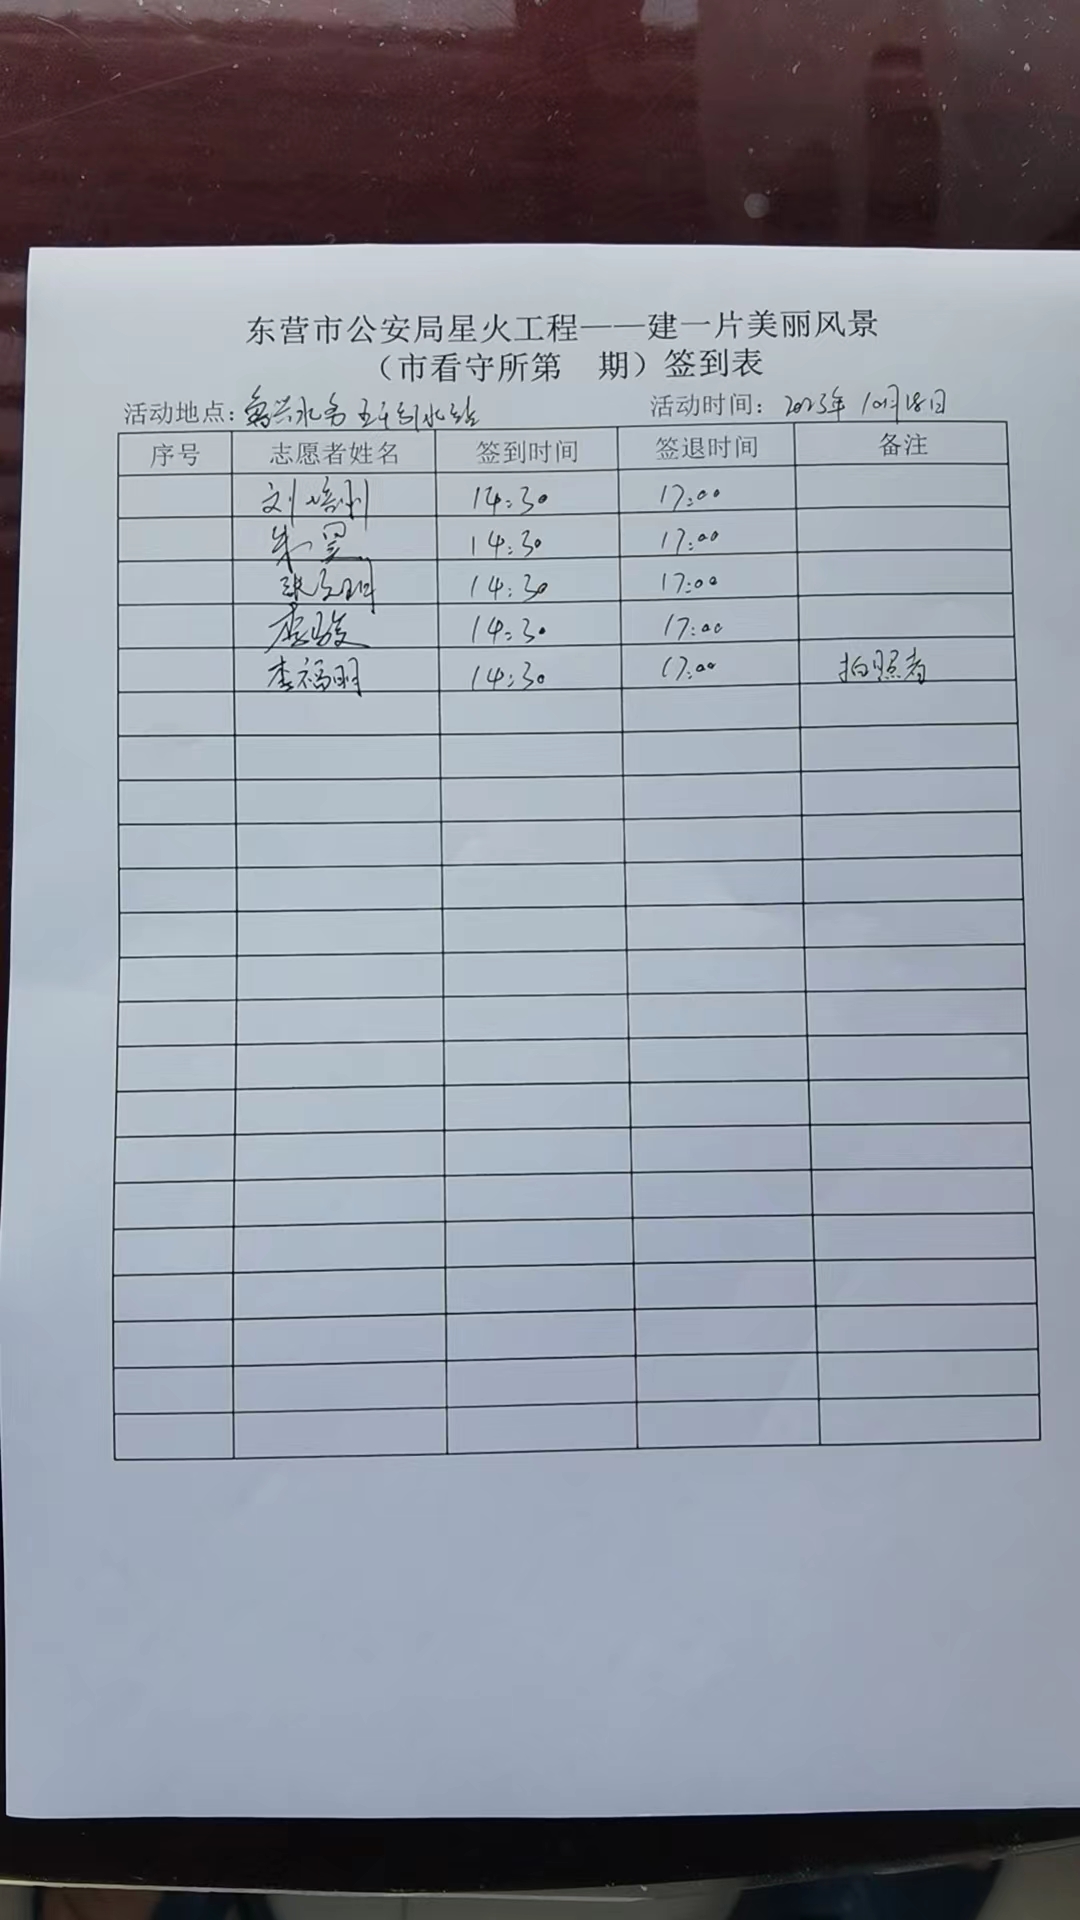 东营市公安局星火工程——建一片美丽风景
（市看守所第 期）签到表
活动地点：鑫兴水务五干引水站 活动时间：2023年10月18日
序号 志愿者姓名 签到时间 签退时间 备注
刘培训 14:30 17:00
朱昊 14:30 17:00
张文明 14:30 17:00
李骏 14:30 17:00
李福明 14:30 17:00 拍照者